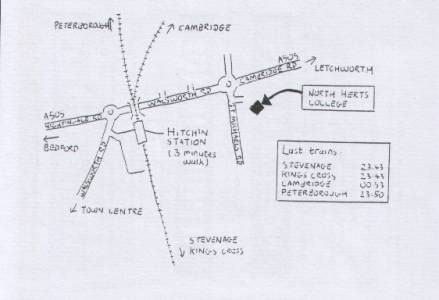 PETERBOROUGH
CAMBRIDGE
A505
CAMBRIDGE RD
LETCHWORTH
WALSWORTH RD
NORTH HERTS
COLLEGE
A505
NIGHTINGALE RD
BEDFORD
HITCHIN
STATION
(3 minutes
walk)
ST MICHAELS RD
WALSWORTH RD
TOWN CENTRE
Last trains:
STEVENAGE 23.43
KINGS CROSS 23.43
CAMBRIDGE 00.53
PETERBOROUGH 23.50
STEVENAGE
KINGS CROSS